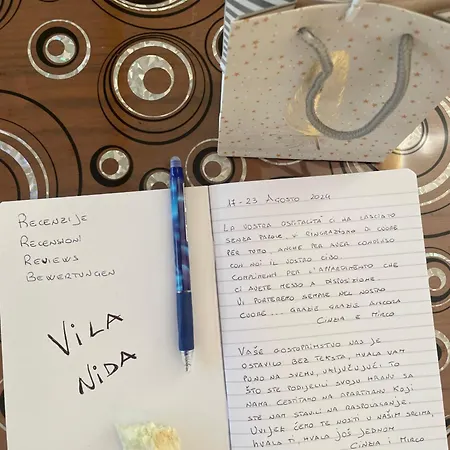 RECENZIJE
RECENSIONI
REVIEWS
BEWERTUNGEN
VILA
NIDA
17-23 AGOSTO 2024
LA VOSTRA OSPITALITÀ CI HA LASCIATO
SENZA PAROLE, VI RINGRAZIAMO DI CUORE
PER TUTTO, ANCHE PER AVER CONDIVISO
CON NOI IL VOSTRO CIBO.
COMPLIMENTI PER L'APPARTAMENTO CHE
CI AVETE MESSO A DISPOSIZIONE.
VI PORTEREMO SEMPRE NEL NOSTRO
CUORE... GRAZIE GRAZIE ANCORA
CINZIA E MIRCO
VAŠE GOSTOPRIMSTVO NAS JE
OSTAVILO BEZ TEKSTA, HVALA VAM
PUNO NA SVEMU, UKLJUČUJUĆI TO
ŠTO STE PODIJELILI SVOJU HRANU SA
NAMA. CESTITAMO NA APARTMANU KOJI
STE NAM STAVILI NA RASPOLAGANJE.
UVIJEK ĆEMO TE NOSITI U NAŠIM SRCIMA,
HVALA TI, HVALA JOŠ JEDNOM
CINZIA I MIRCO